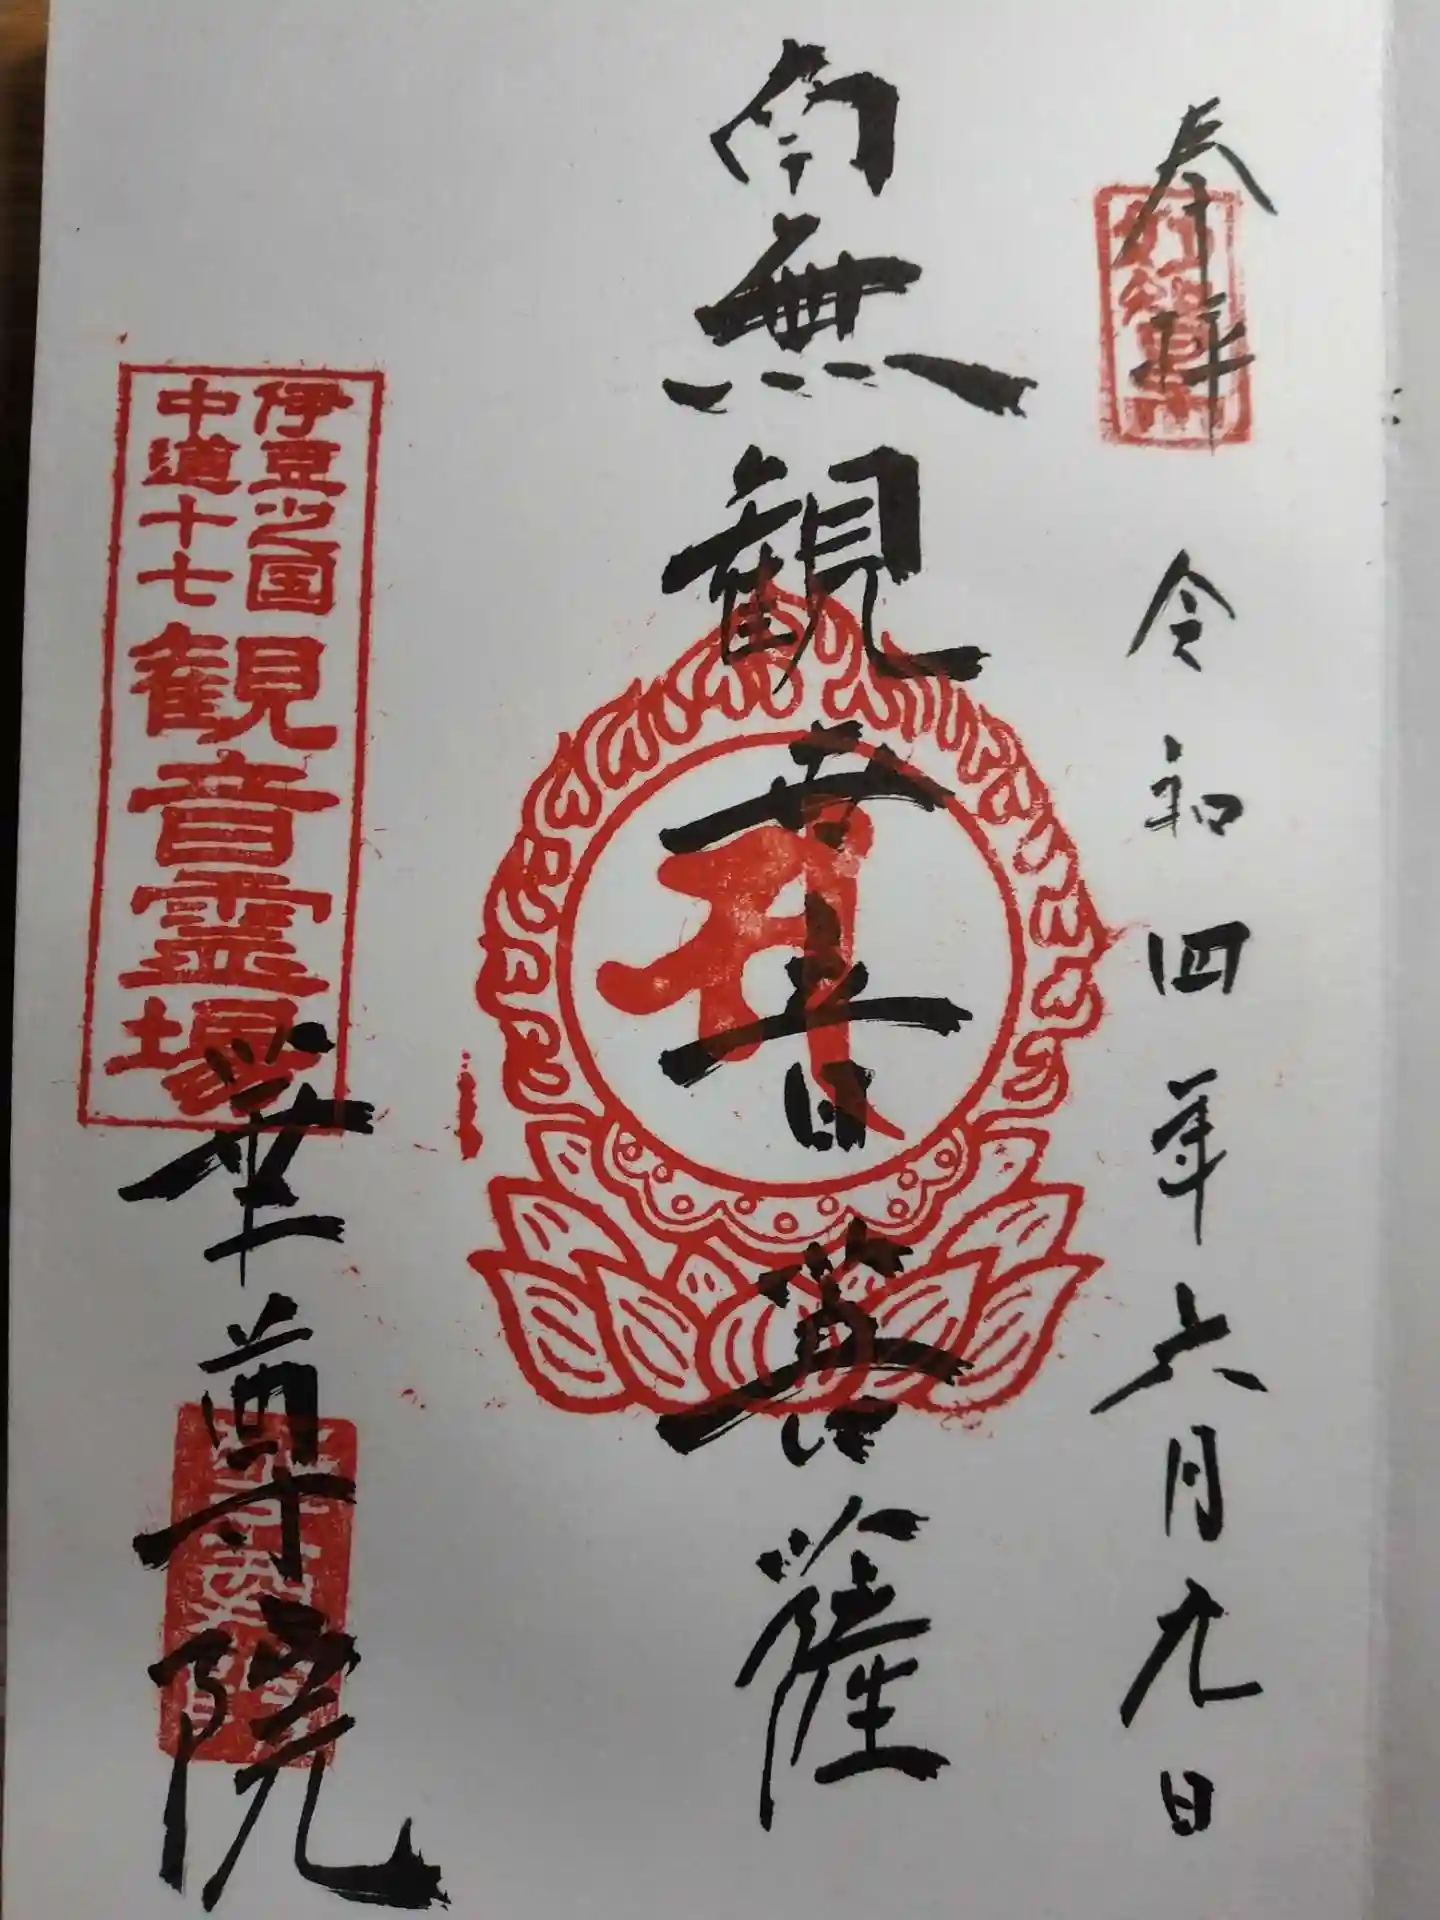 奉拝 令和四年六月九日
南無観世音菩薩
伊豆之国
中道十七
観音霊場
華尊院